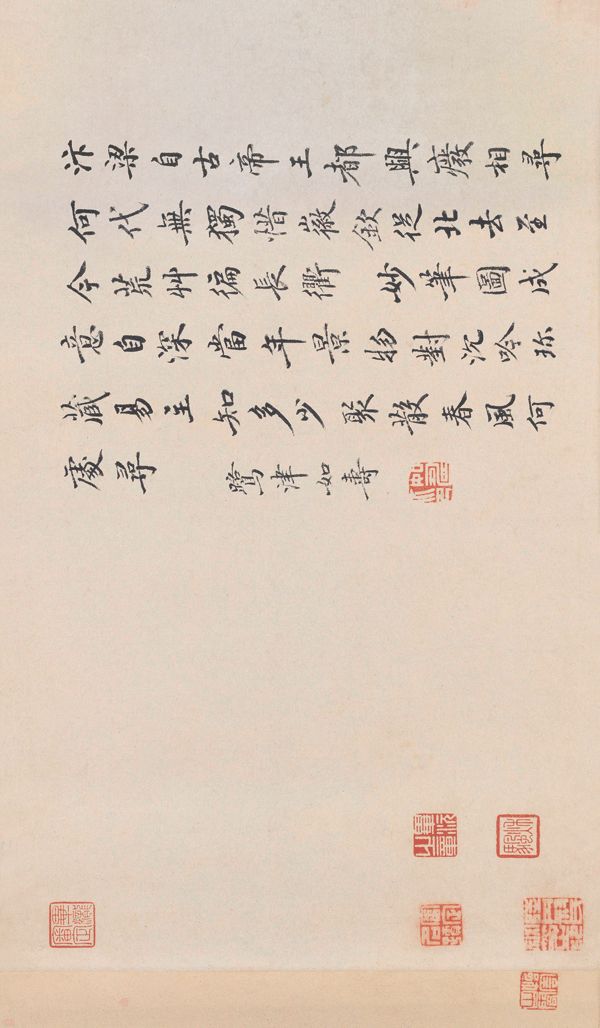 汴梁自古帝王都興癈相尋
何代無獨惜徽欽從北去至
今荒艸徧長衢 妙筆圖成
意自深當年景物對沉吟珎
藏易主知多少聚散春風何
處尋 鷺津如壽